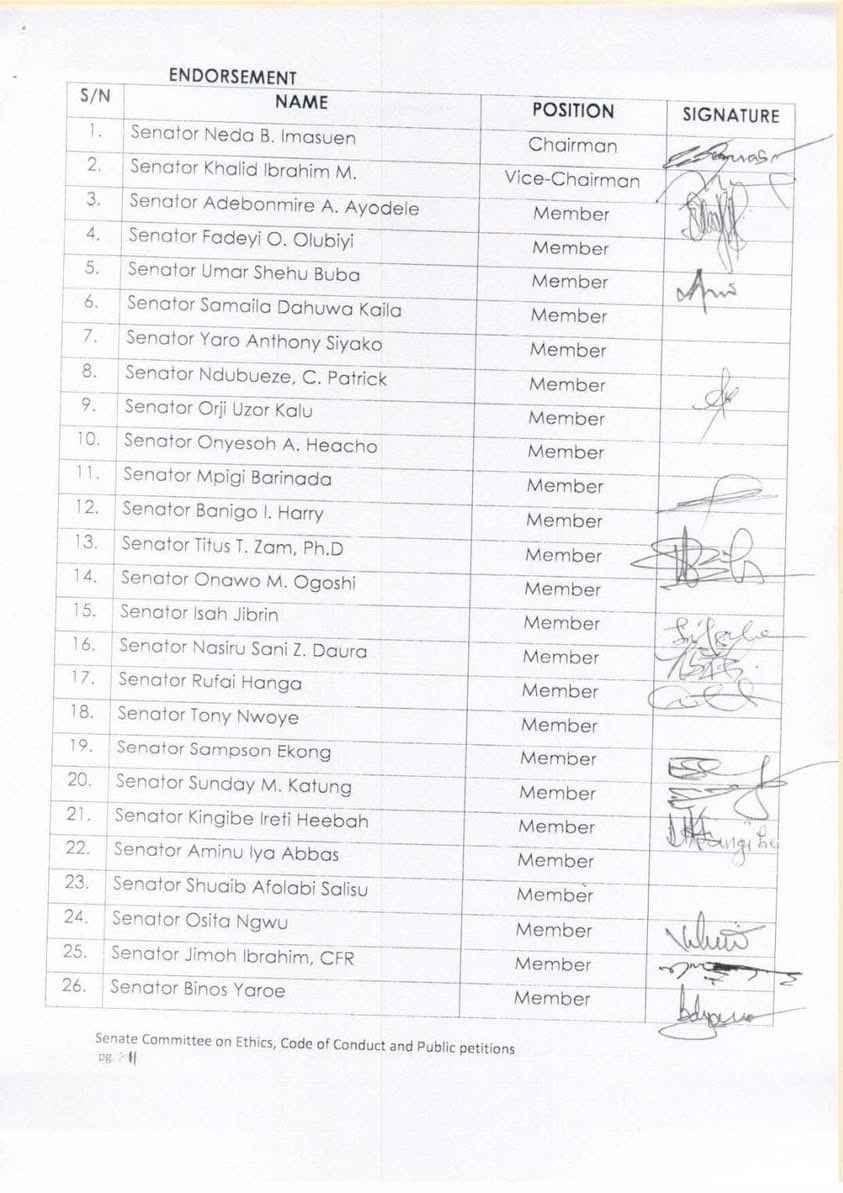 ENDORSEMENT
S/N NAME POSITION SIGNATURE
1. Senator Neda B. Imasuen Chairman
2. Senator Khalid Ibrahim M. Vice-Chairman
3. Senator Adebonmire A. Ayodele Member
4. Senator Fadeyi O. Olubiyi Member
5. Senator Umar Shehu Buba Member
6. Senator Samaila Dahuwa Kaila Member
7. Senator Yaro Anthony Siyako Member
8. Senator Ndubueze, C. Patrick Member
9. Senator Orji Uzor Kalu Member
10. Senator Onyesoh A. Heacho Member
11. Senator Mpigi Barinada Member
12. Senator Banigo I. Harry Member
13. Senator Titus T. Zam, Ph.D Member
14. Senator Onawo M. Ogoshi Member
15. Senator Isah Jibrin Member
16. Senator Nasiru Sani Z. Daura Member
17. Senator Rufai Hanga Member
18. Senator Tony Nwoye Member
19. Senator Sampson Ekong Member
20. Senator Sunday M. Katung Member
21. Senator Kingibe Ireti Heebah Member
22. Senator Aminu Iya Abbas Member
23. Senator Shuaib Afolabi Salisu Member
24. Senator Osita Ngwu Member
25. Senator Jimoh Ibrahim, CFR Member
26. Senator Binos Yaroe Member
Senate Committee on Ethics, Code of Conduct and Public petitions
pg.